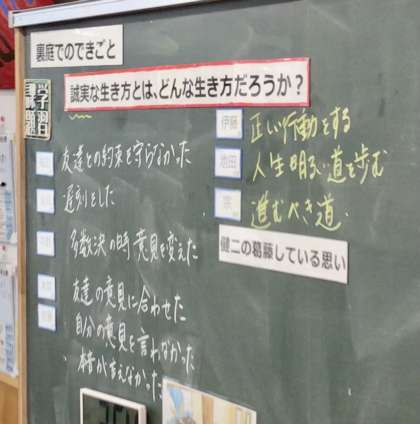 裏庭でのできごと
学習課題
誠実な生き方とは、どんな生き方だろうか?
友達との約束を守らなかった
遅刻をした
多数決の時 意見を変えた
友達の意見に合わせた
自分の意見を言わなかった
本音が言えなかった
伊藤
正しい行動をする
池田
人生明るい道を歩む
宗
進むべき道
健二の葛藤している思い